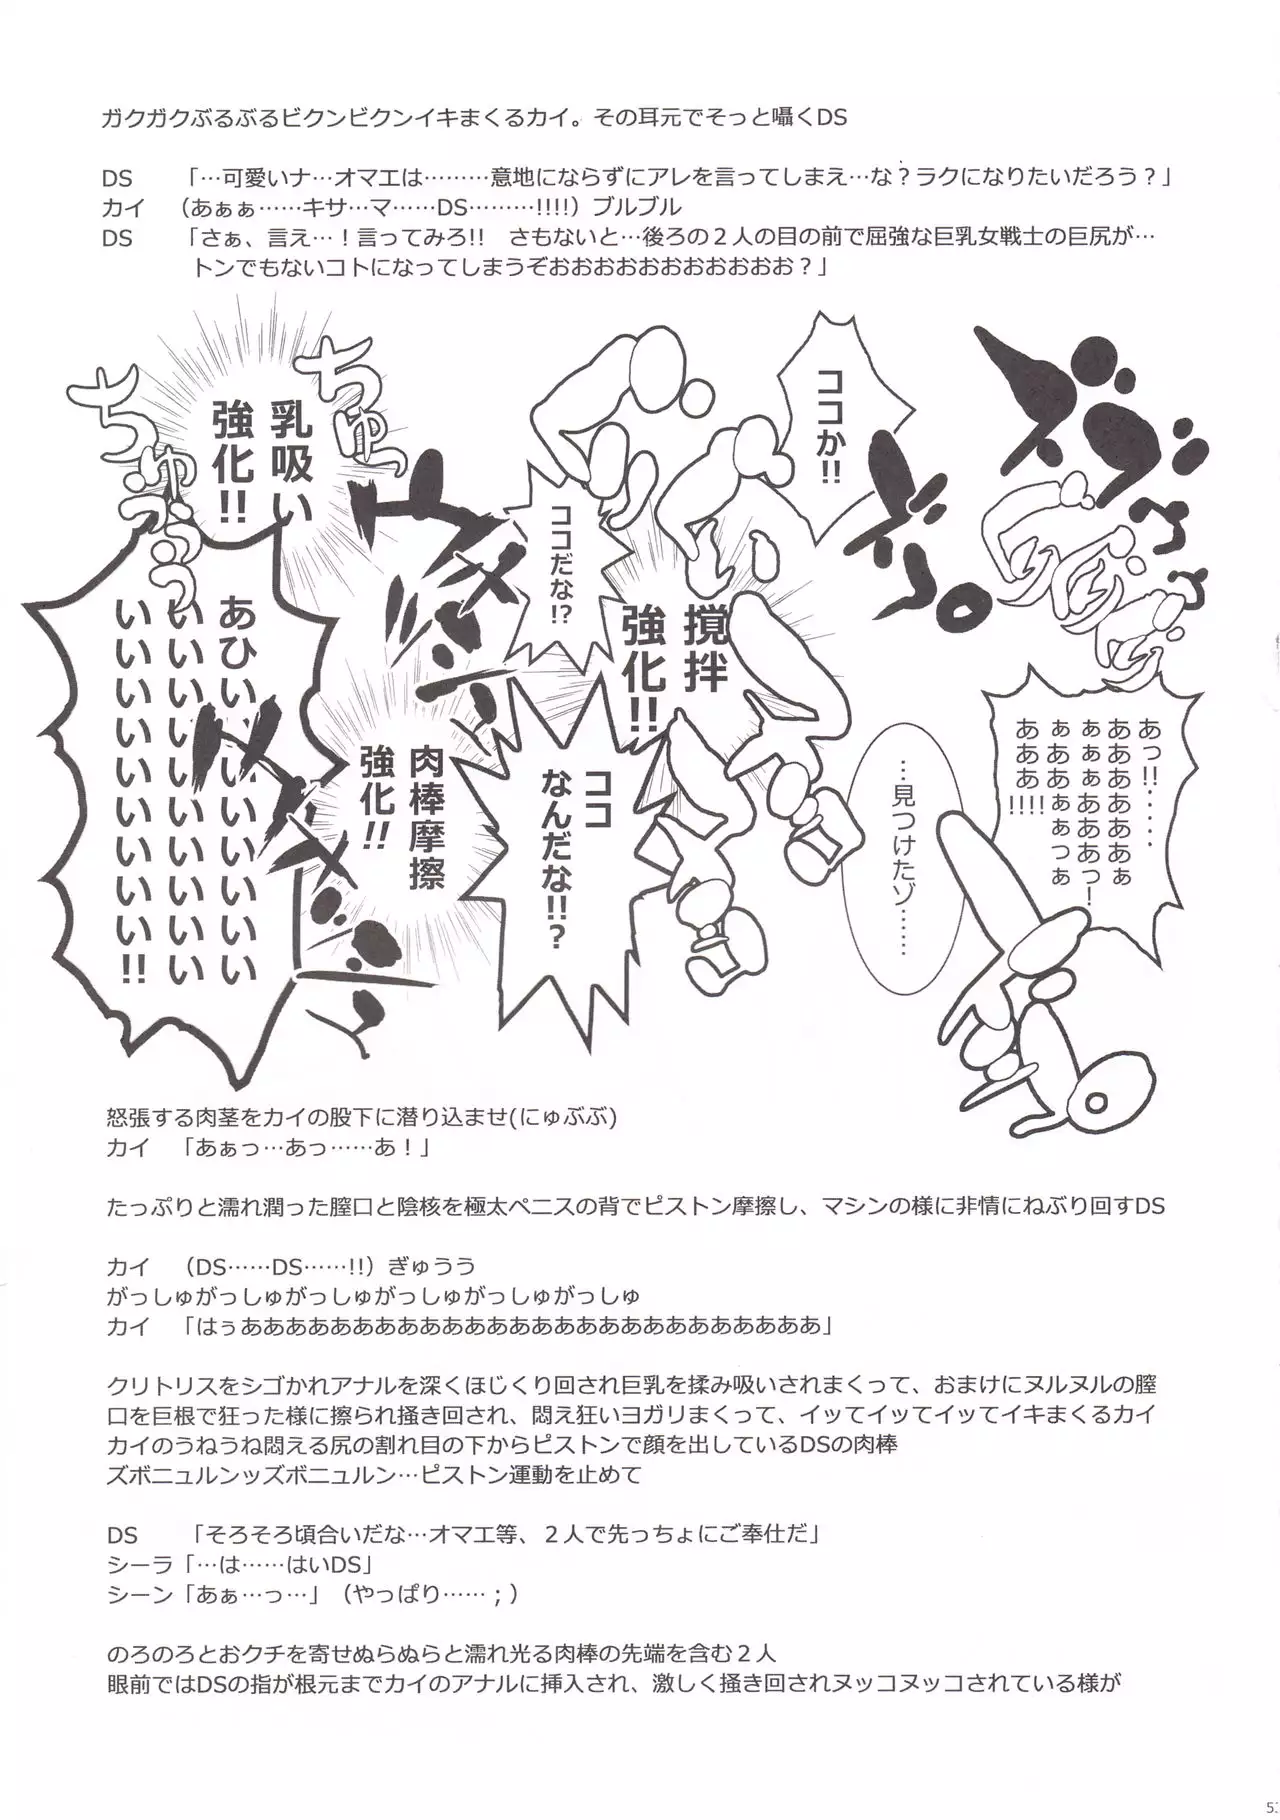 ガクガクぶるぶるビクンビクンイキまくるカイ。その耳元でそっと囁くDS
DS 「…可愛いナ…オマエは………意地にならずにアレを言ってしまえ…な？ラクになりたいだろう？」
カイ （あぁぁ……キサ…マ……DS………!!!!）ブルブル
DS 「さぁ、言え…！言ってみろ!! さもないと…後ろの２人の目の前で屈強な巨乳女戦士の巨尻が…
トンでもないコトになってしまうぞおおおおおおおおおおお？」
あっ!!……
ああああああぁ
ぁぁぁぁあああっ！
ぁあああぁぁっぁ
あああ!!!!
…見つけたゾ……
ココか!!
攪拌
強化!!
ココだな!?
ココ
なんだな!!?
肉棒摩擦
強化!!
乳吸い
強化!!
ちゅっ
ちゅううう
あひいいいいいいいい
いいいいいいいいいい
いいいいいいいいい!!
怒張する肉茎をカイの股下に潜り込ませ(にゅぶぶ)
カイ 「あぁっ…あっ……あ！」
たっぷりと濡れ潤った膣口と陰核を極太ペニスの背でピストン摩擦し、マシンの様に非情にねぶり回すDS
カイ （DS……DS……!!）ぎゅうう
がっしゅがっしゅがっしゅがっしゅがっしゅがっしゅ
カイ 「はぅああああああああああああああああああああああああああ」
クリトリスをシゴかれアナルを深くほじくり回され巨乳を揉み吸いされまくって、おまけにヌルヌルの膣
口を巨根で狂った様に擦られ掻き回され、悶え狂いヨガリまくって、イッてイッてイッてイキまくるカイ
カイのうねうね悶える尻の割れ目の下からピストンで顔を出しているDSの肉棒
ズボニュルンッズボニュルン…ピストン運動を止めて
DS 「そろそろ頃合いだな…オマエ等、２人で先っちょにご奉仕だ」
シーラ「…は……はいDS」
シーン「あぁ…っ…」（やっぱり……；）
のろのろとおクチを寄せぬらぬらと濡れ光る肉棒の先端を含む２人
眼前ではDSの指が根元までカイのアナルに挿入され、激しく掻き回されヌッコヌッコされている様が